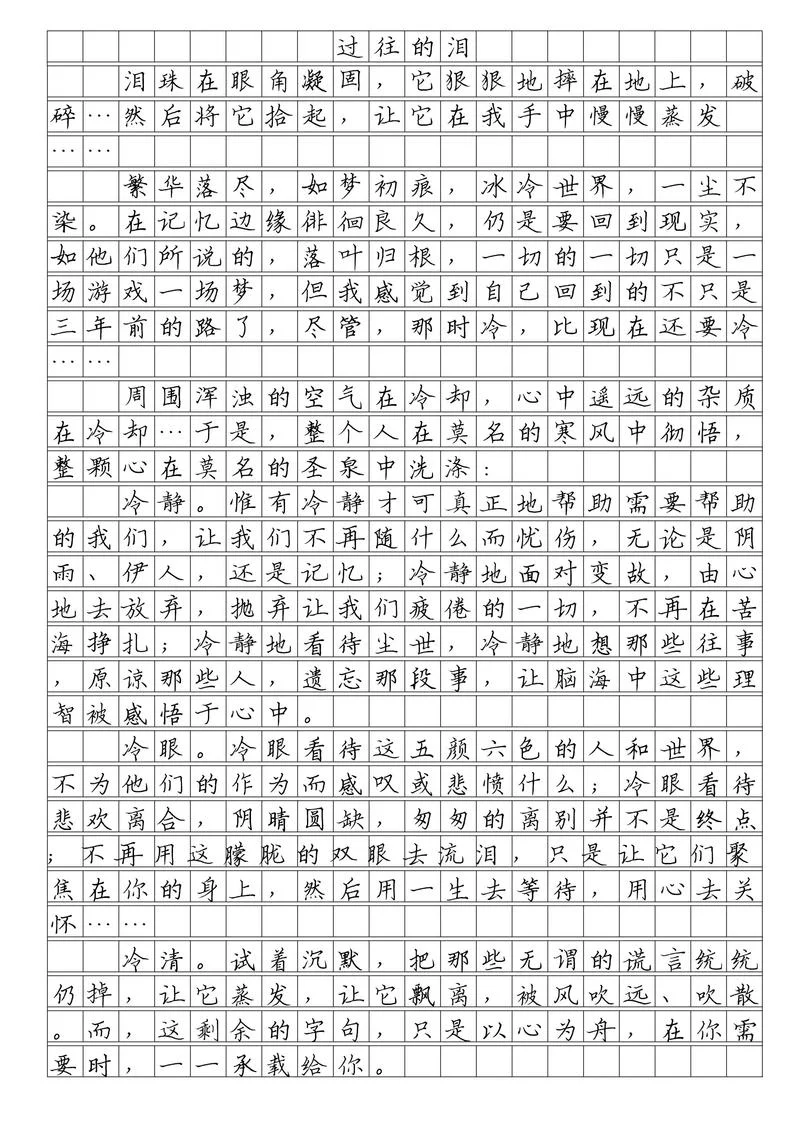 过往的泪
泪珠在眼角凝固，它狠狠地摔在地上，破
碎…然后将它拾起，让它在我手中慢慢蒸发
……
繁华落尽，如梦初痕，冰冷世界，一尘不
染。在记忆边缘徘徊良久，仍是要回到现实，
如他们所说的，落叶归根，一切的一切只是一
场游戏一场梦，但我感觉到自己回到的不只是
三年前的路了，尽管，那时冷，比现在还要冷
……
周围浑浊的空气在冷却，心中遥远的杂质
在冷却…于是，整个人在莫名的寒风中彻悟，
整颗心在莫名的圣泉中洗涤：
冷静。惟有冷静才可真正地帮助需要帮助
的我们，让我们不再随什么而忧伤，无论是阴
雨、伊人，还是记忆；冷静地面对变故，由心
地去放弃，抛弃让我们疲倦的一切，不再在苦
海挣扎；冷静地看待尘世，冷静地想那些往事
，原谅那些人，遗忘那段事，让脑海中这些理
智被感悟于心中。
冷眼。冷眼看待这五颜六色的人和世界，
不为他们的作为而感叹或悲愤什么；冷眼看待
悲欢离合，阴晴圆缺，匆匆的离别并不是终点
；不再用这朦胧的双眼去流泪，只是让它们聚
焦在你的身上，然后用一生去等待，用心去关
怀……
冷清。试着沉默，把那些无谓的谎言统统
仍掉，让它蒸发，让它飘离，被风吹远、吹散
。而，这剩余的字句，只是以心为舟，在你需
要时，一一承载给你。